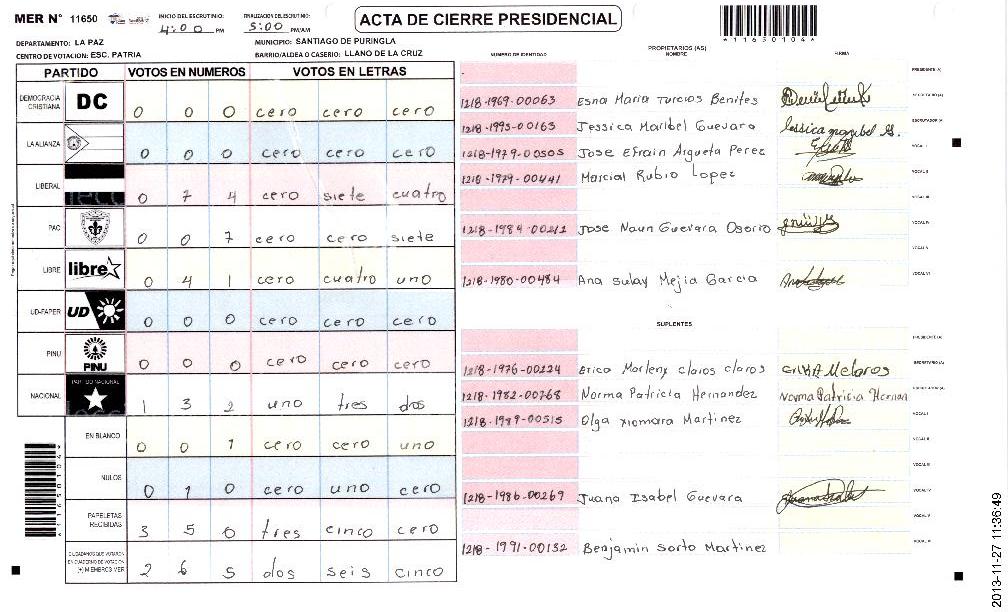 MER N° 11650
INICIO DEL ESCRUTINIO: 4:00 PM
FINALIZACION DEL ESCRUTINIO: 5:00 PM/AM
ACTA DE CIERRE PRESIDENCIAL
*11650104*
DEPARTAMENTO: LA PAZ
MUNICIPIO: SANTIAGO DE PURINGLA
CENTRO DE VOTACION: ESC. PATRIA
BARRIO/ALDEA O CASERIO: LLANO DE LA CRUZ
PARTIDO VOTOS EN NUMEROS VOTOS EN LETRAS
DEMOCRACIA CRISTIANA DC 0 0 0 cero cero cero
LA ALIANZA 0 0 0 cero cero cero
LIBERAL 0 7 4 cero siete cuatro
PAC 0 0 7 cero cero siete
LIBRE libre 0 4 1 cero cuatro uno
UD-FAPER UD 0 0 0 cero cero cero
PINU PINU 0 0 0 cero cero cero
NACIONAL PARTIDO NACIONAL 1 3 2 uno tres dos
EN BLANCO 0 0 1 cero cero uno
NULOS 0 1 0 cero uno cero
PAPELETAS RECIBIDAS 3 5 0 tres cinco cero
CIUDADANOS QUE VOTARON EN CUADERNO DE VOTACION (+) MIEMBROS MER 2 6 5 dos seis cinco
PROPIETARIOS (AS)
NUMERO DE IDENTIDAD NOMBRE FIRMA
PRESIDENTE (A)
1218-1969-00063 Esna Maria Turcios Benites SECRETARIO (A)
1218-1995-00163 Jessica Maribel Guevara ESCRUTADOR (A)
1218-1979-00505 Jose Efrain Argueta Perez VOCAL I
1218-1979-00441 Marcial Rubio Lopez VOCAL II
VOCAL III
1218-1984-00212 Jose Naun Guevara Osorio VOCAL IV
VOCAL V
1218-1980-00484 Ana Sulay Mejia Garcia VOCAL VI
SUPLENTES
PRESIDENTE (A)
1218-1976-00224 Erica Marleny claros claros SECRETARIO (A)
1218-1982-00768 Norma Patricia Hernandez Norma Patricia Hernan
1218-1989-00515 Olga xiomara Martinez VOCAL I
VOCAL II
VOCAL III
1218-1986-00269 Juana Isabel Guevara VOCAL IV
VOCAL V
1218-1991-00132 Benjamin Sorto Martinez VOCAL VI
2013-11-27 11:36:49